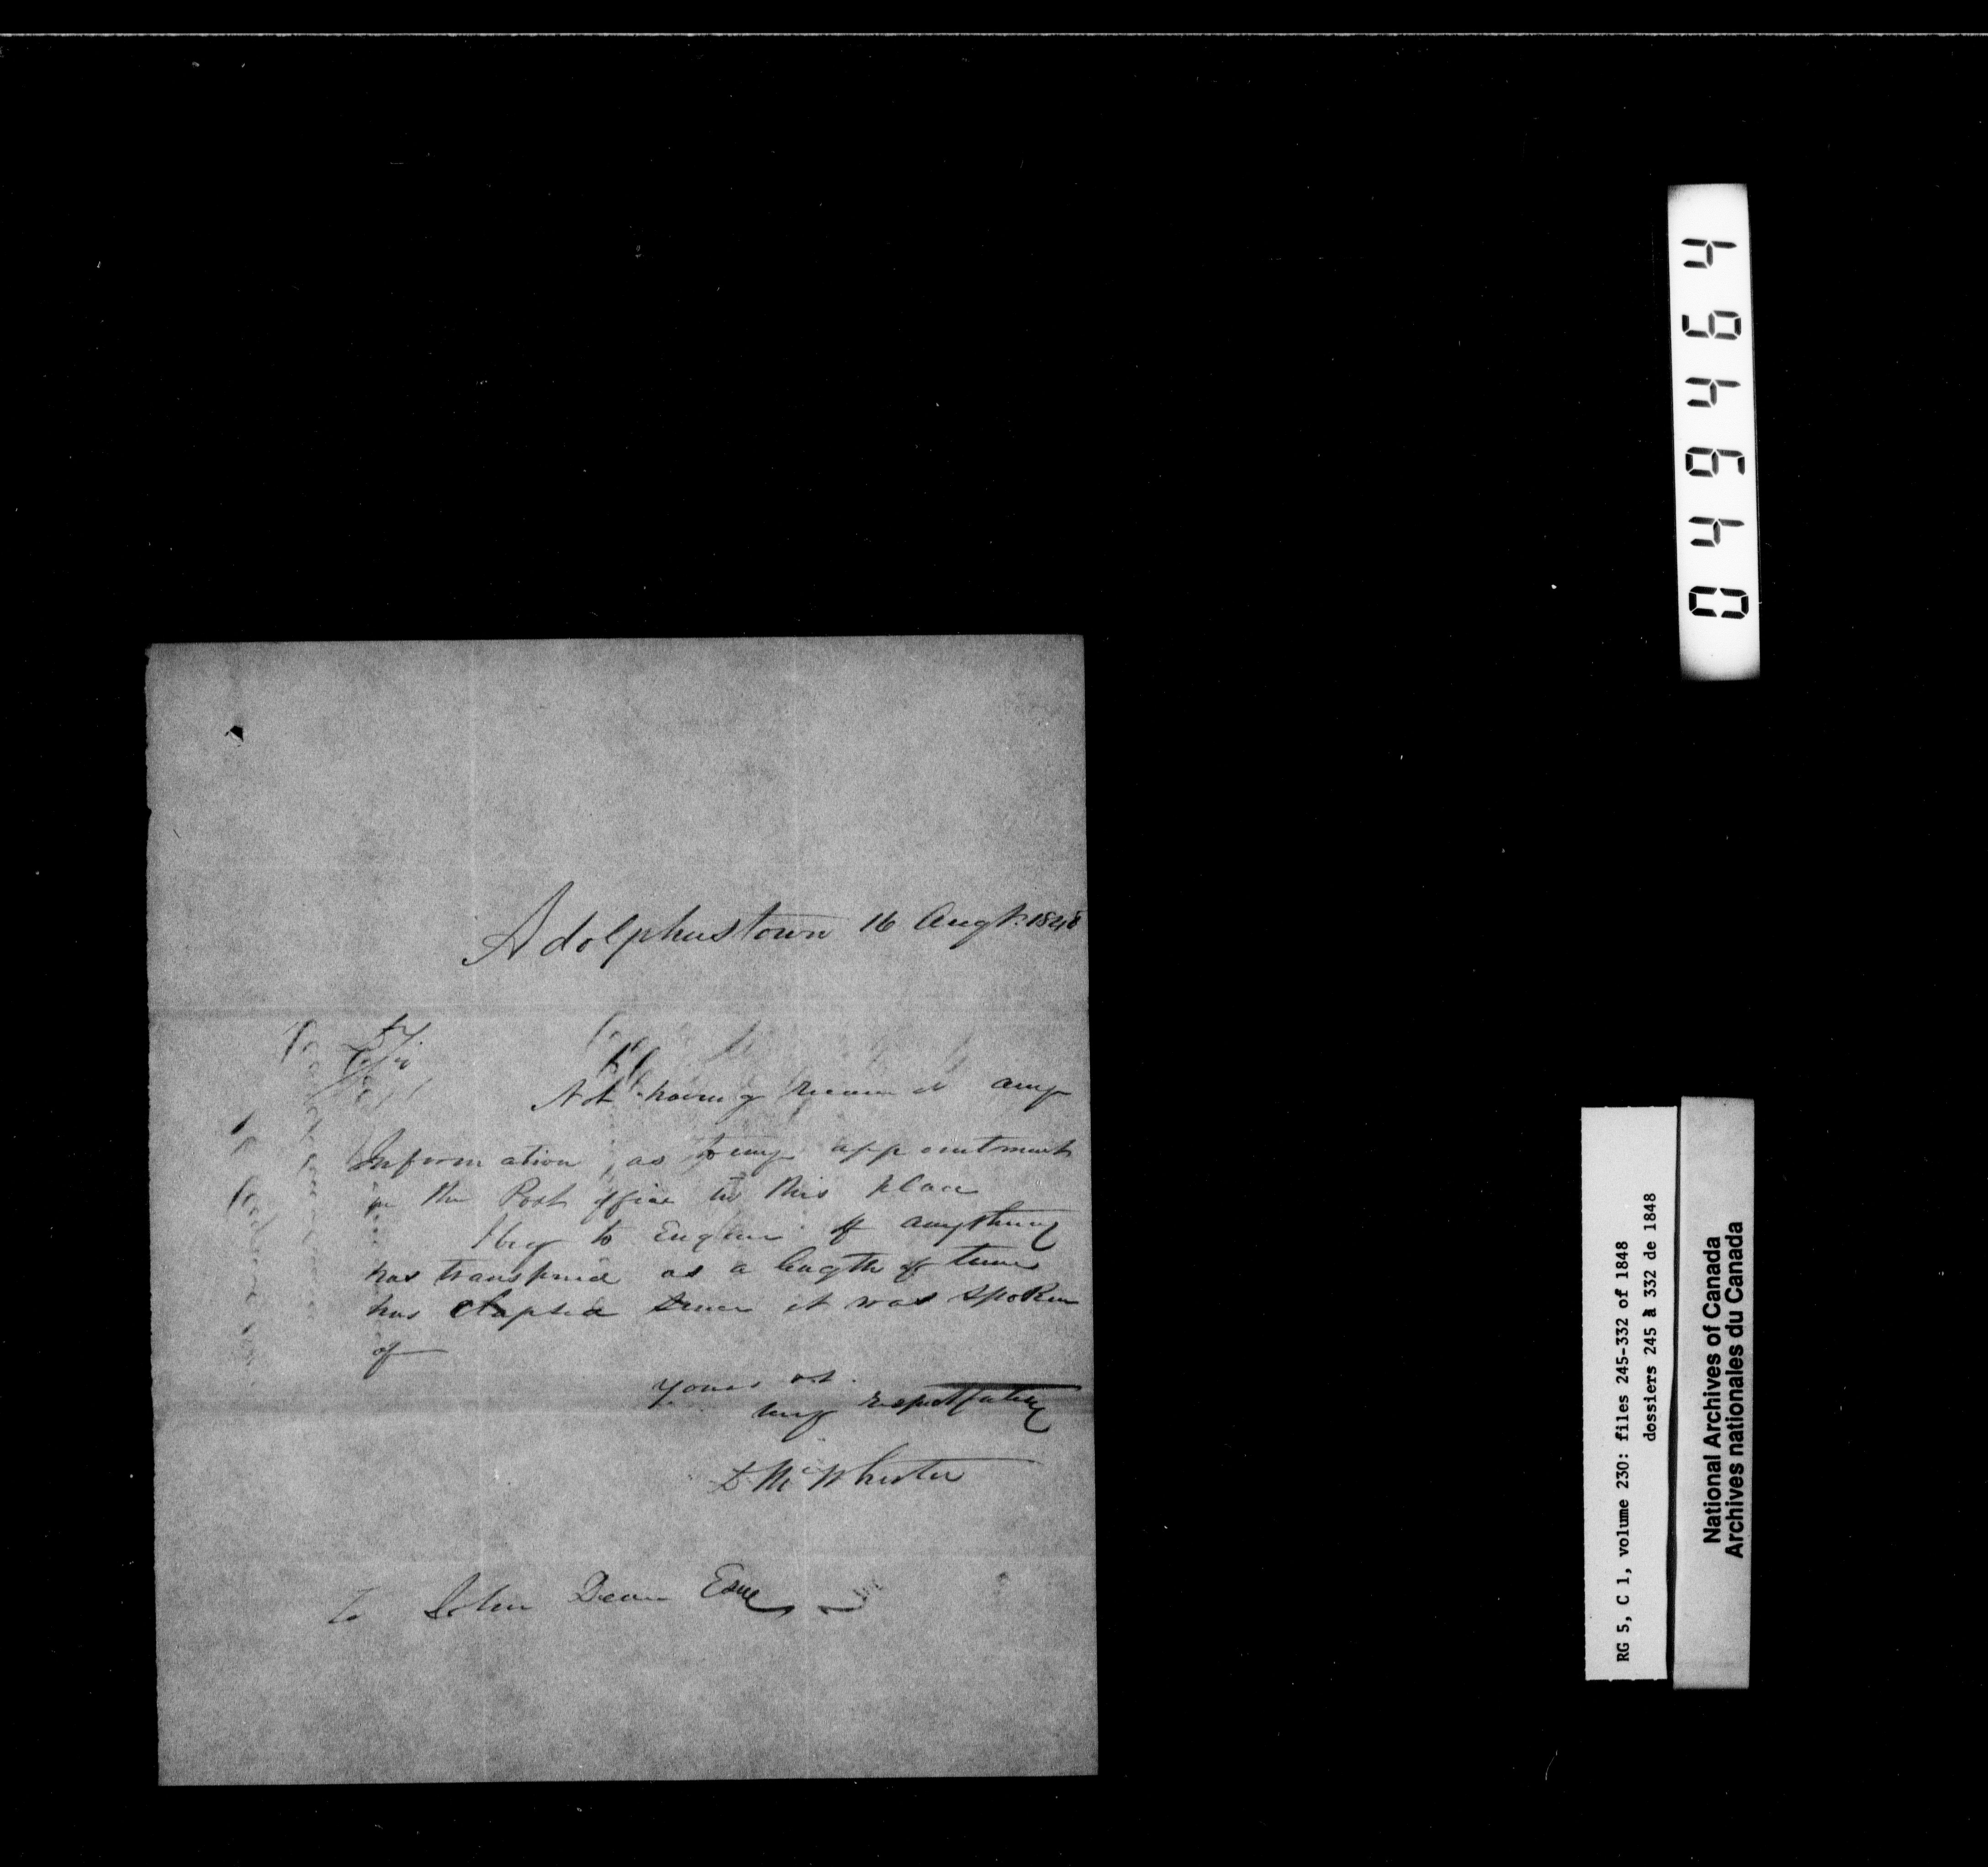 Adolphustown 16 Augt. 1848
Sir
Not having received any
Information as to my appointment
in the Post office in this place
I beg to Enquire if anything
has transpired as a length of time
has elapsed since it was spoken
of
Yours &c.
very respectfully
D McWhirter
To John Dean Esqe
044644
RG 5, C 1, volume 230: files 245-332 of 1848
dossiers 245 à 332 de 1848
National Archives of Canada
Archives nationales du Canada